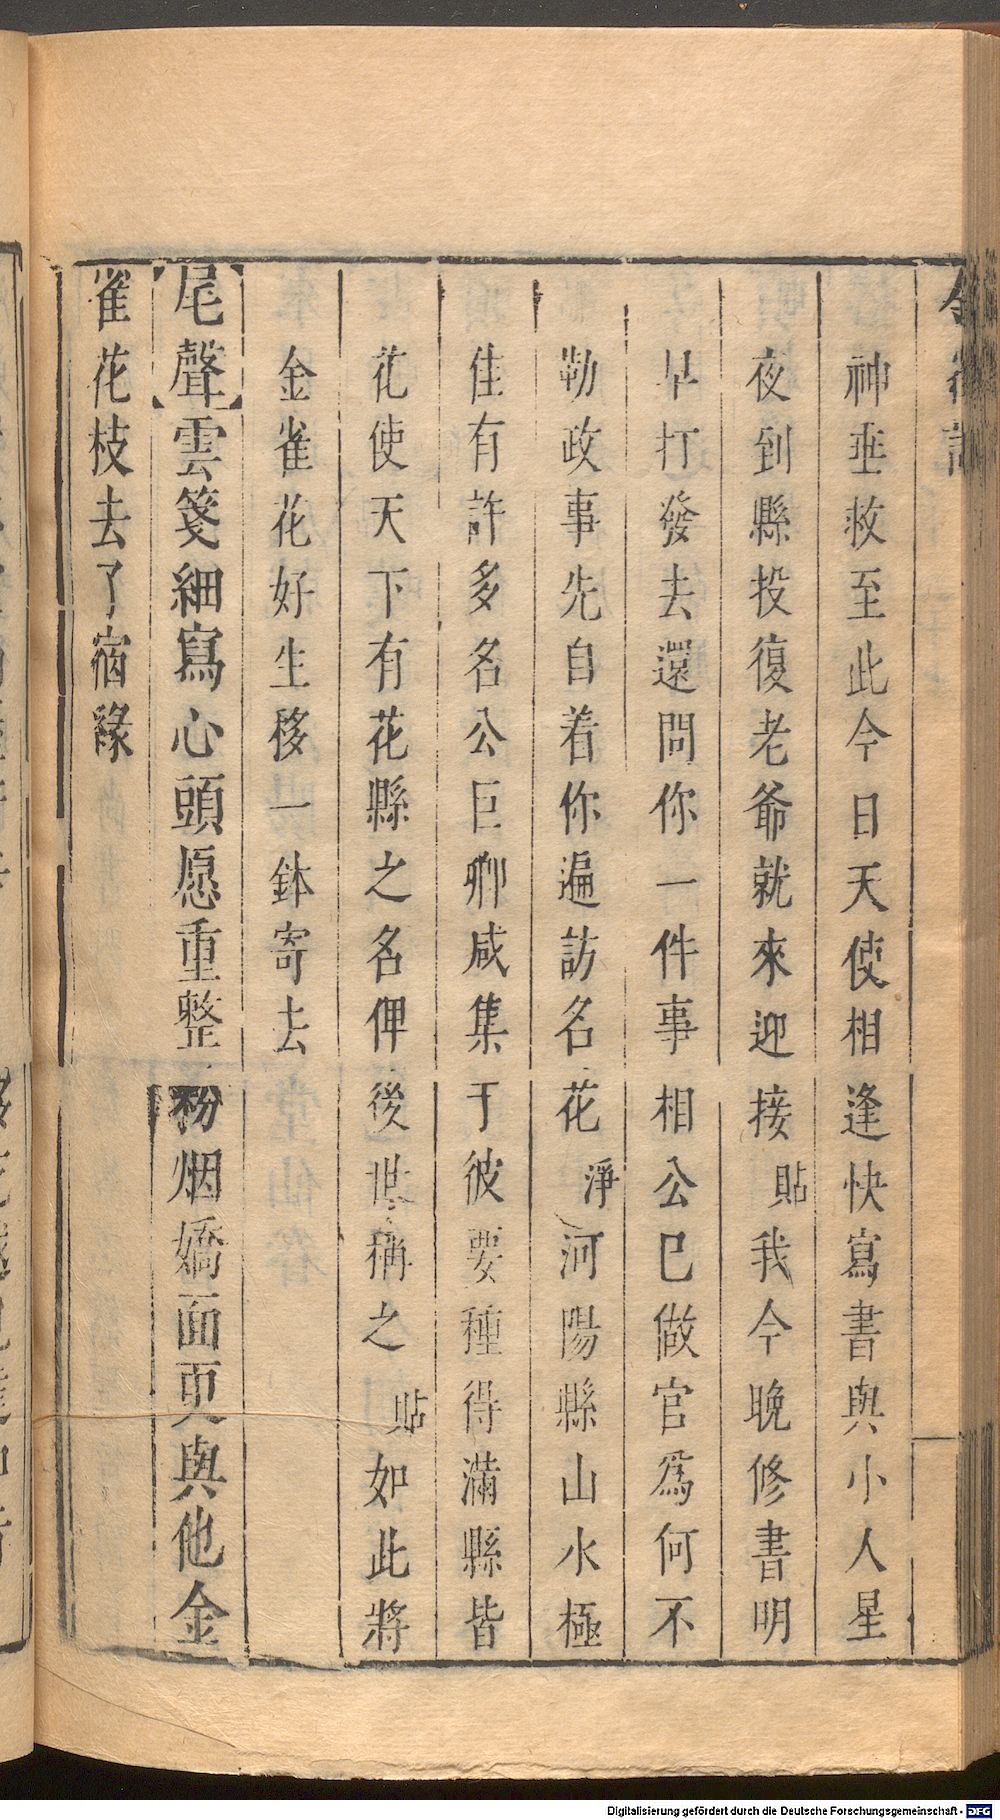 金雀記
神垂救至此今日天使相逢快寫書與小人星
夜到縣投復老爺就來迎接貼我今晚修書明
早打發去還問你一件事相公已做官爲何不
勤政事先自着你遍訪名花淨河陽縣山水極
佳有許多名公巨卿咸集于彼要種得滿縣皆
花使天下有花縣之名俾後世稱之貼如此將
金雀花好生移一鉢寄去
【尾聲】雲箋細寫心頭愿重整粉烟嬌面更與他金
雀花枝去了宿緣
Digitalisierung gefördert durch die Deutsche Forschungsgemeinschaft - DFG